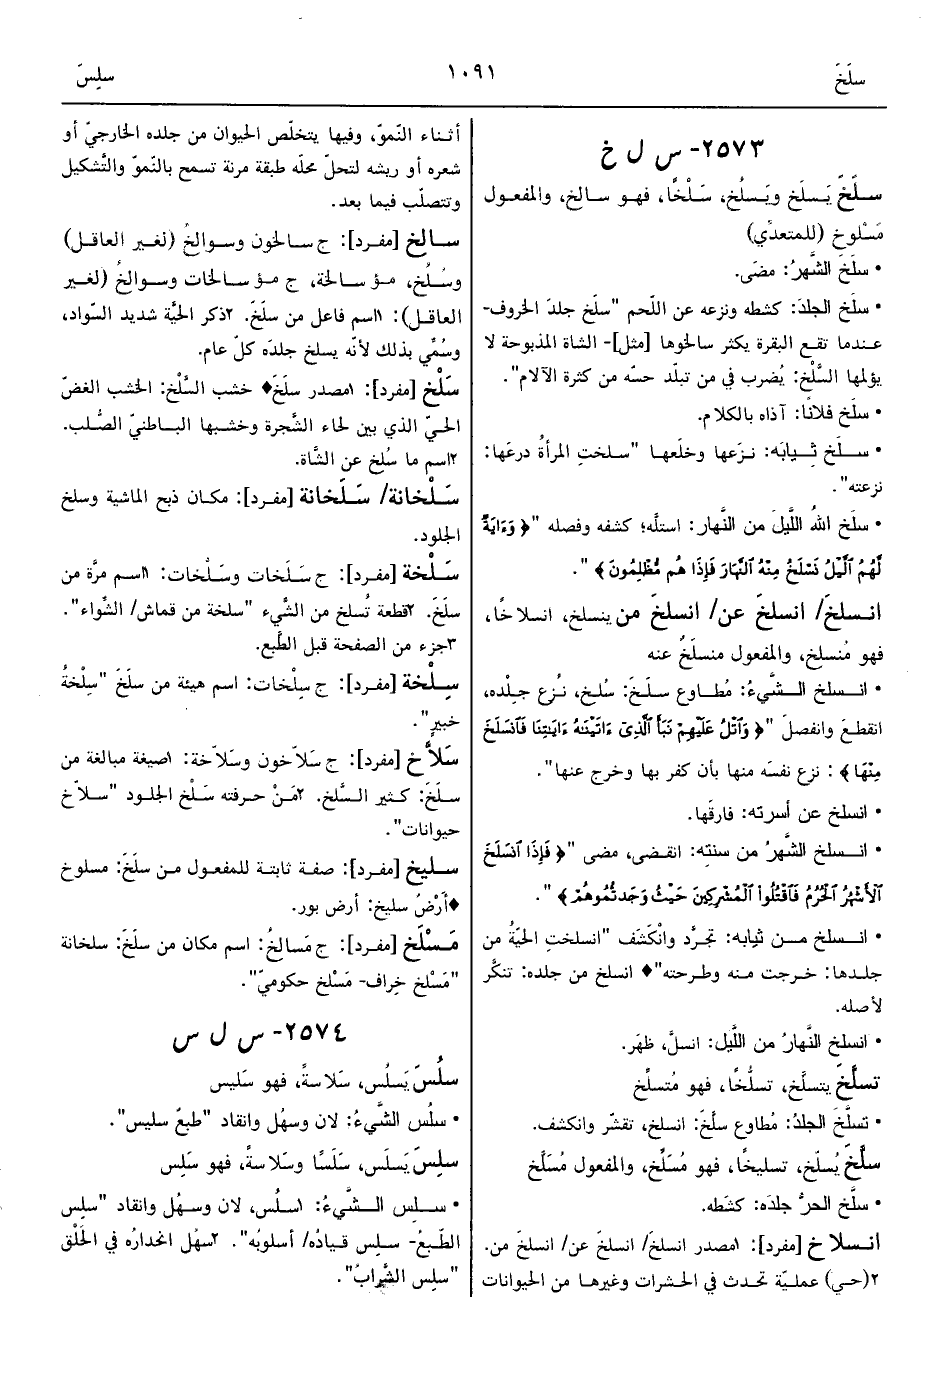 سلَخَ
١٠٩١
سلِسَ
٢٥٧٣- س ل خ
سلَخَ يَسلَخ ويَسلُخ، سَلْخًا، فهو سالخ، والمفعول
مَسْلوخ (للمتعدِّي)
• سلَخَ الشَّهرُ: مضَى.
• سلَخ الجلدَ: كشطه ونزعه عن اللّحم "سلَخ جلدَ الخروف-
عندما تقع البقرة يكثر سالخوها [مثل]- الشاة المذبوحة لا
يؤلمها السَّلْخ: يُضرب في من تبلّد حسّه من كثرة الآلام".
• سلَخ فلانًا: آذاه بالكلام.
• سلَخ ثِيابَه: نزعها وخلَعها "سلختِ المرأةُ درعَها:
نزعته".
• سلَخ اللهُ اللَّيلَ من النَّهار: استلَّه؛ كشفه وفصله "﴿ وَءَايَةٌ
لَّهُمُ ٱلَّيْلُ نَسْلَخُ مِنْهُ ٱلنَّهَارَ فَإِذَا هُم مُّظْلِمُونَ ﴾ ".
انسلخَ/ انسلخَ عن/ انسلخَ من ينسلخ، انسلاخًا،
فهو مُنسلِخ، والمفعول منسلَخٌ عنه
• انسلخ الشَّيءُ: مُطاوع سلَخَ: سُلخ، نُزع جلْده،
انقطعَ وانفصلَ "﴿ وَٱتْلُ عَلَيْهِمْ نَبَأَ ٱلَّذِىٓ ءَاتَيْنَٰهُ ءَايَٰتِنَا فَٱنسَلَخَ
مِنْهَا ﴾ : نزع نفسَه منها بأن كفر بها وخرج عنها".
• انسلخ عن أسرته: فارقَها.
• انسلخ الشَّهرُ من سنته: انقضى، مضى "﴿ فَإِذَا ٱنسَلَخَ
ٱلْأَشْهُرُ ٱلْحُرُمُ فَٱقْتُلُوا۟ ٱلْمُشْرِكِينَ حَيْثُ وَجَدتُّمُوهُمْ ﴾ ".
• انسلخ من ثيابه: تجرَّد وانْكَشَف "انسلختِ الحيَّةُ من
جلدها: خرجت منه وطرحته"♦ انسلخ من جلده: تنكَّر
لأصله.
• انسلخ النَّهارُ من اللَّيل: انسلَّ، ظهَر.
تسلَّخَ يتسلَّخ، تسلُّخًا، فهو مُتسلِّخ
• تسلَّخَ الجلدُ: مُطاوع سلَّخَ: انسلخ، تقشّر وانكشف.
سلَّخَ يُسلِّخ، تسليخًا، فهو مُسَلِّخ، والمفعول مُسَلَّخ
• سلَّخ الحرُّ جلدَه: كشَطه.
انسلاخ [مفرد]: ١مصدر انسلخَ/ انسلخَ عن/ انسلخَ من.
٢(حي) عمليّة تحدث في الحشرات وغيرها من الحيوانات
أثناء النّموّ، وفيها يتخلّص الحيوان من جلده الخارجيّ أو
شعره أو ريشه لتحلّ محلّه طبقة مرنة تسمح بالنّموّ والتَّشكيل
وتتصلّب فيما بعد.
سالخ [مفرد]: ج سالخون وسوالخُ (لغير العاقل)
وسُلَّخ، مؤ سالخة، ج مؤ سالخات وسوالخُ (لغير
العاقل): ١اسم فاعل من سلَخَ. ٢ذكر الحيَّة شديد السّواد،
وسُمِّي بذلك لأنّه يسلخ جلدَه كلّ عام.
سَلْخ [مفرد]: ١مصدر سلَخَ♦ خشب السَّلْخ: الخشب الغضّ
الحيّ الذي بين لحاء الشَّجرة وخشبها الباطنيّ الصُّلب.
٢اسم ما سُلخ عن الشَّاة.
سَلْخانة/ سَلَخانة [مفرد]: مكان ذبح الماشية وسلخ
الجلود.
سَلْخة [مفرد]: ج سَلَخات وسَلْخات: ١اسم مرَّة من
سلَخَ. ٢قطعة تُسلخ من الشَّيء "سلخة من قماش/ الشِّواء".
٣جزء من الصفحة قبل الطَّبع.
سِلْخة [مفرد]: ج سِلْخات: اسم هيئة من سلَخَ "سِلْخةُ
خبيرٍ".
سَلاَّخ [مفرد]: ج سَلاَّخون وسَلاَّخة: ١صيغة مبالغة من
سلَخَ: كثير السَّلخ. ٢مَنْ حرفته سَلْخ الجلود "سلاّخ
حيوانات".
سليخ [مفرد]: صفة ثابتة للمفعول من سلَخَ: مسلوخ
♦أَرْضٌ سليخ: أرض بور.
مَسْلَخ [مفرد]: ج مَسالخُ: اسم مكان من سلَخَ: سلخانة
"مَسْلخ خِراف- مَسْلخ حكوميّ".
٢٥٧٤- س ل س
سلُسَ يَسلُس، سَلاسةً، فهو سَليس
• سلُس الشَّيءُ: لان وسهُل وانقاد "طبعٌ سليس".
سلِسَ يَسلَس، سَلَسًا وسَلاسةً، فهو سَلِس
• سلِس الشَّيءُ: ١سلُس، لان وسهُل وانقاد "سلِس
الطَّبعُ- سلِس قيادُه/ أسلوبُه". ٢سهُل انحدارُه في الحَلْق
"سلِس الشَّرابُ".